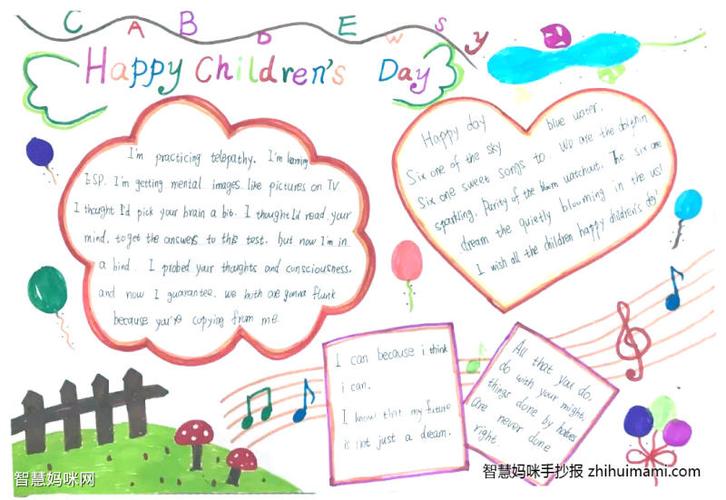 C A B D E W S y
Happy Children's Day
I'm practicing telepathy. I'm learning
ESP. I'm getting mental images like pictures on TV
I thought I'd pick your brain a bit. I thought I'd read your
mind, to get the answers to this test. but now I'm in
a bind. I probed your thoughts and consciousness.
and now I guarantee. we both are gonna flunk
because you're copying from me
Happy day blue water.
Six one of the sky We are the dolphin
Six one sweet songs to
sparkling. Purity of the bloom watchout. The six one
dream the quietly blooming in the us!
I wish all the children happy children's day!
I can because i think
i can.
I know that my future
is not just a dream.
All that you do.
do with your might.
things done by halves
are never done
right.
智慧妈咪网
智慧妈咪手抄报 zhihuimami.com